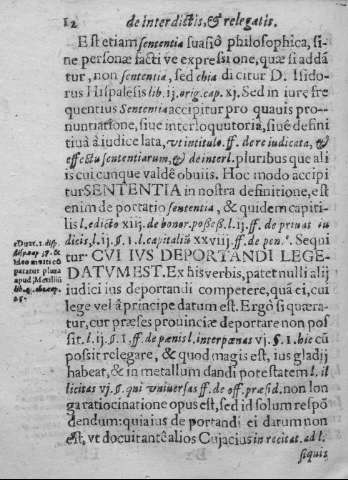 12 de interdictis, & relegatis.
Est etiam sententia suasiô philosophica, si-
ne personæ facti ve expressione, quæ si adda
tur, non sententia, sed chia dicitur D. Isido
rus Hispalẽsis lib. ij. orig. cap. xj. Sed in iure fre
quentius Sententia accipitur pro quauis pro-
nuntiatione, siue interloquutoria, siuè defini
tiua à iudice lata, vt in titulo. ff. de re iudicata, &
effectu sententiarum, & de interl. pluribus que ali
is cuicunque valdè obuiis. Hoc modo accipi
tur SENTENTIA in nostra definitione, est
enim deportatio sententia, & quidem capita-
lis l. edicto xiij. de bonor. posseß. l. ij. ff. de priuat iu
dicijs, l. ij. §. 1. l. capitaliũ xxviij. ff. de pen. Sequi
tur CVI IVS DEPORTANDI LEGE-
DATVM EST. Ex his verbis, patet nulli alij
iudici ius deportandi competere, quã ei, cui
lege vel à principe datum est. Ergò si quæra-
tur, cur præses prouinciæ deportare non pos
sit. l. ij. §. 1. ff. de pænis l. inter pœnas vj. §. 1. hic cũ
possit relegare, & quod magis est, ius gladij
habeat, & in metallum dandi potestatem l. il
licitas vj. §. qui vniuersas ff. de off. præsid. non lon
ga ratiocinatione opus est, sed id solum respõ
dendum: quia ius deportandi ei datum non
est, vt docuit antè alios Cujacius in recitat. ad l.
siquis